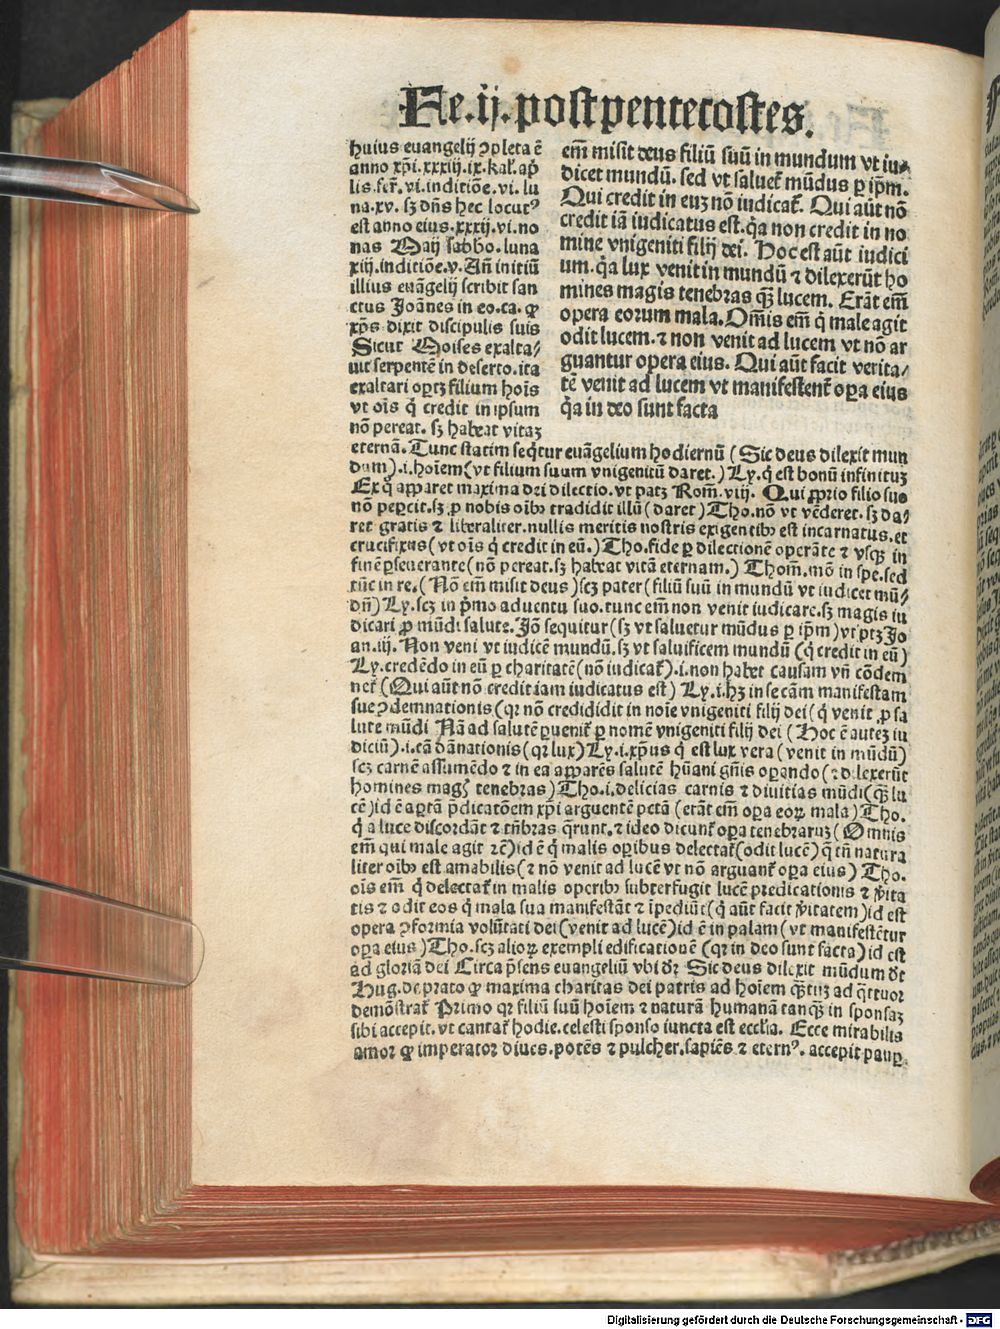 Fe.ij.post pentecostes.
huius euangelij ꝯpleta ē
anno xp̄i.xxxiij.ix.kal̄.ap̄
lis.fer̄.vi.inditiōe.vi.lu
na.xv.sꝫ dn̄s hec locutꝰ
est anno eius.xxxij.vi.no
nas Maij sabbo.luna
xiij.inditiōe.v.An̄ initiū
illius euāgelij scribit san
ctus Joānes in eo.ca. ꝙ
xp̄s dixit discipulis suis
Sicut Moises exalta/
uit serpentē in deserto.ita
exaltari oꝑtꝫ filium hoīs
vt oīs q̇ credit in ipsum
nō pereat. sꝫ habeat vitaꝫ
em̄ misit deus filiū suū in mundum vt iu/
dicet mundū. sed vt saluet̄ mūdus ꝑ ip̄m.
Qui credit in euꝫ nō iudicat̄. Qui aūt nō
credit iā iudicatus est.q̄a non credit in no
mine vnigeniti filij dei. Hoc est aūt iudici
um.q̄a lux venit in mundū ⁊ dilexerūt ho
mines magis tenebras q̄ꝫ lucem. Erāt em̄
opera eorum mala. Om̄is em̄ q̇ male agit
odit lucem.⁊ non venit ad lucem vt nō ar
guantur opera eius. Qui aūt facit verita/
tē venit ad lucem vt manifestent̄ oꝑa eius
q̄a in deo sunt facta
eternā.Tunc statim seq̇tur euāgelium hodiernū (Sic deus dilexit mun
dum).i.hoīem(vt filium suum vnigenitū daret.) Ly.q̇ est bonū infinituꝫ
Ex q̇ apparet maxima dei dilectio.vt patꝫ Rom̄.viij. Qui ꝓprio filio suo
nō peꝑcit.sꝫ ꝓ nobis oībꝰ tradidit illū(daret)Tho.nō vt vēderet.sꝫ da/
ret gratis ⁊ liberaliter.nullis meritis nostris exigentibꝰ est incarnatus.et
crucifixus(vt oīs q̇ credit in eū.)Tho.fide ꝑ dilectionē operāte ⁊ vsqꝫ in
finē ꝑseuerante(nō pereat.sꝫ habeat vitā eternam.) Thom̄.mō in spe.sed
tūc in re.(Nō em̄ misit deus)scꝫ pater(filiū suū in mundū vt iudicet mū/
dū)Ly.scꝫ in pͥmo aduentu suo.tunc em̄ non venit iudicare.sꝫ magis iu
dicari ꝓ mūdi salute.Jō sequitur(sꝫ vt saluetur mūdus ꝑ ip̄m)vt ptꝫ Jo
an.iij. Non veni vt iudicē mundū.sꝫ vt saluificem mundū (q̇ credit in eū)
Ly.credēdo in eū ꝑ charitatē(nō iudicat̄).i.non habet causam vn̄ cōdem
net̄ (Qui aūt nō credit iam iudicatus est) Ly.i.hꝫ in se cām manifestam
sue ꝯdemnationis(qꝛ nō credidit in noīe vnigeniti filij dei(q̇ venit ꝓ sa
lute mūdi Nā ad salutē ꝑuenit̄ ꝑ nomē vnigeniti filij dei (Hoc ē auteꝫ iu
diciū).i.cā dānationis(qꝛ lux)Ly.i.xp̄us q̇ est lux vera(venit in mūdū)
scꝫ carnē assumēdo ⁊ in ea apparēs salutē hūani gn̄is oꝑando(⁊ dilexerūt
homines magꝭ tenebras)Tho.i.delicias carnis ⁊ diuitias mūdi(q̄ꝫ lu
cē)id ē aꝑtā p̄dicatōem xp̄i arguentē pctā(erāt em̄ oꝑa eoꝝ mala)Tho.
q̇ a luce discordāt ⁊ tn̄bras q̄runt.⁊ ideo dicunt̄ oꝑa tenebraruꝫ(Omnis
em̄ qui male agit ⁊ē)id ē q̇ malis oꝑibus delectat̄(odit lucē)q̄ tn̄ natura
liter oībꝰ est amabilis(⁊ nō venit ad lucē vt nō arguant̄ oꝑa eius) Tho.
oīs em̄ q̇ delectat̄ in malis operibꝰ subterfugit lucē predicationis ⁊ v̄ita
tis ⁊ odit eos q̇ mala sua manifestāt ⁊ īpediūt(q̇ aūt facit v̄itatem)id est
opera ꝯformia volūtati dei(venit ad lucē)id ē in palam(vt manifestētur
oꝑa eius)Tho.scꝫ alioꝝ exempli edificationē (qꝛ in deo sunt facta)id est
ad gloriā dei Circa p̄sens euangeliū vbi dr̄ Sic deus dilexit mūdum dt̄
Hug.de prato ꝙ maxima charitas dei patris ad hoīem q̄ꝫtuꝫ ad q̄ttuor
demōstrat̄ Primo qꝛ filiū suū hoīem ⁊ naturā humanā tanqꝫ in sponsaꝫ
sibi accepit.vt cantat̄ hodie.celesti sponso iuncta est ecclīa. Ecce mirabilis
amor ꝙ imperator diues.potēs ⁊ pulcher.sapiēs ⁊ eternꝰ.accepit pauꝑ
Digitalisierung gefördert durch die Deutsche Forschungsgemeinschaft - DFG